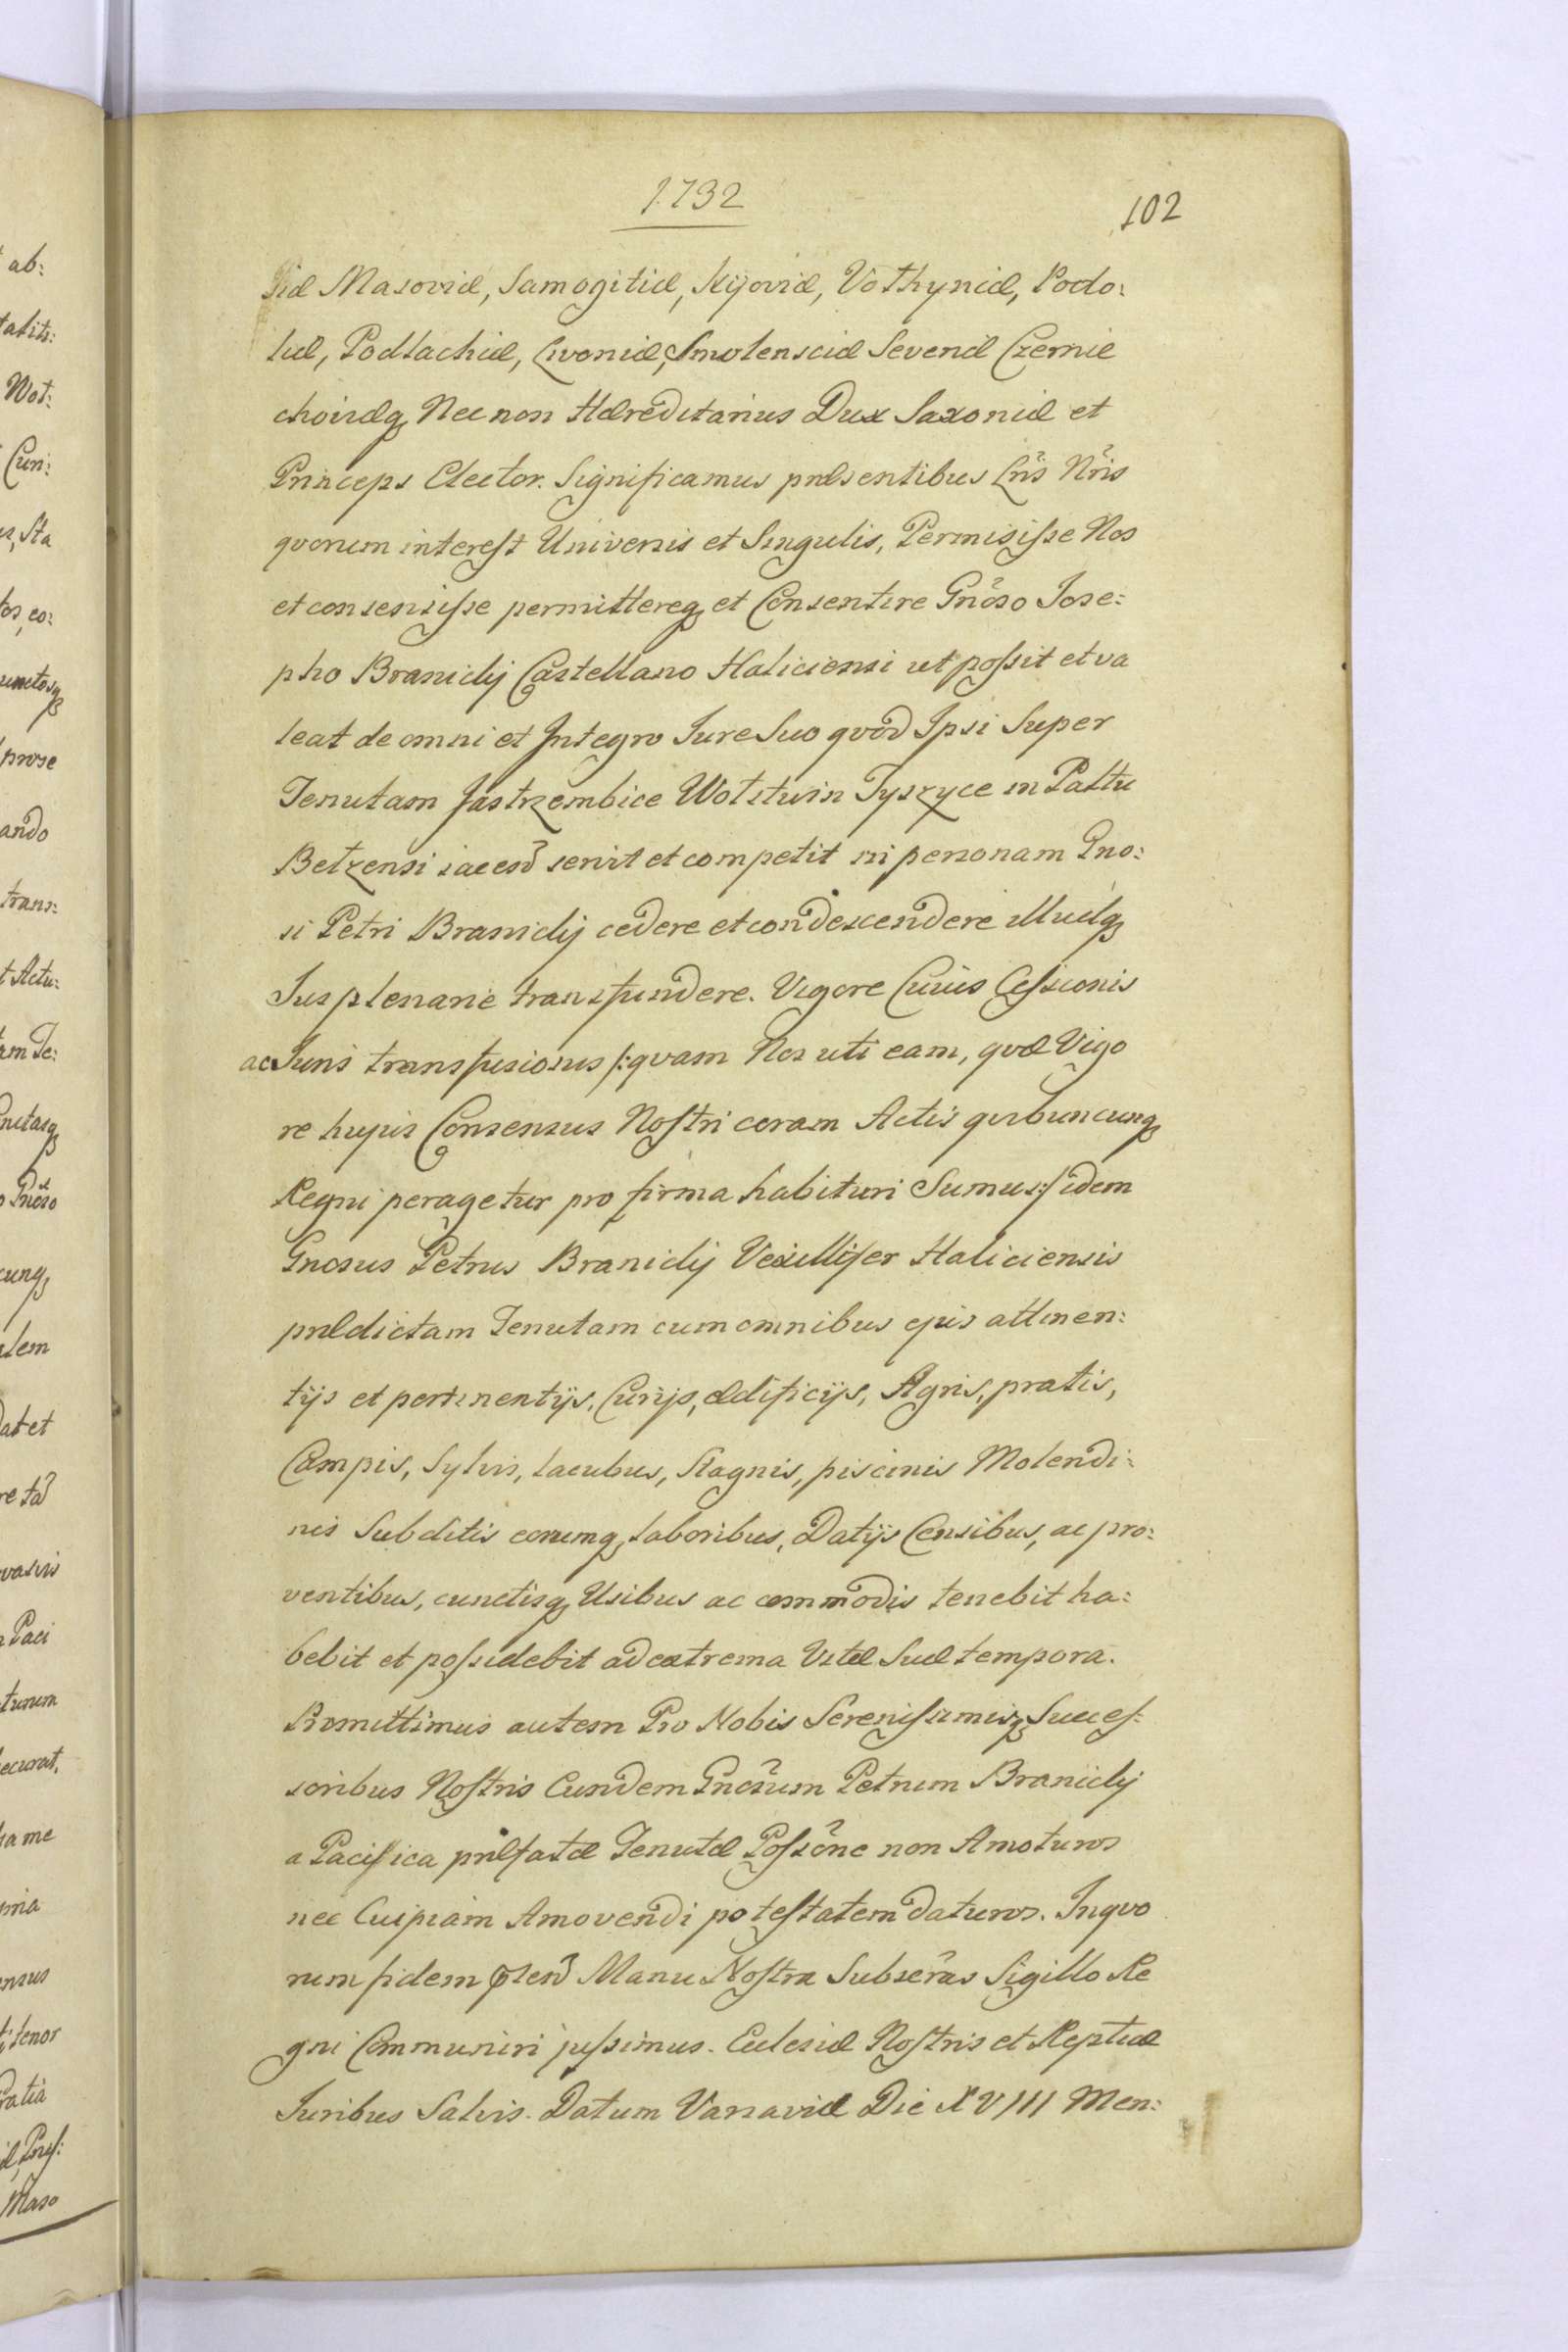 1732
102
siæ Masoviæ, Samogitiæ, Kijoviæ, Volhyniæ, Podo:
liæ, Podlachiæ, Livoniæ, Smolensciæ Severiæ Czernie
choviæq3 Nec non Hæreditarius Dux Saxoniæ et
Princeps Elector. Significamus præsentibus Lris Nris
quorum interest Universis et Singulis, Permisisse Nos
et consensisse permittereq3 et Consentire Gnoso Jose:
pho Branicki Castellano Haliciensi ut possit et va
leat de omni et Integro Jure Suo qvod Ipsi Super
Tenutam Jastrzembice Wolstwin Tyszyce in Pallu
Belzensi iacen servit et competit in personam Gno:
si Petri Branicki cedere et condescendere illudq3
Jus plenarie transfundere. Vigore Cuius Cessionis
ac Juris transfusionis /:qvam Nos uti eam, qvæ Vigo
re hujus Consensus Nostri coram Actis quibuscunq3
Regni peragetur pro firma habituri Sumus:/ idem
Gnosus Petrus Branicki Vexillifer Haliciensis
prædictam Tenutam cum omnibus ejus attinen:
tijs et pertinentijs, Curijs, ædificijs, Agris, pratis,
Campis, Sylvis, lacubus, Stagnis, piscinis Molendi:
nis Subditis eorumq3 laboribus, Datijs Censibus, ac pro:
ventibus, cunctisq3 Usibus ac commodis tenebit ha:
bebit et possidebit ad extrema Vitæ Suæ tempora.
Promittimus autem Pro Nobis Serenissimisq3 Succes:
soribus Nostris Eundem Gnosum Petrum Branicki
a Pacifica præfatæ Tenutæ Possone non Amoturos
nec Cuipiam Amovendi potestatem daturos. In qvo
rum fidem Manu Nostra Subscras Sigillo Re
gni Communiri jussimus. Eclesiæ Nostris et Reptcæ
Juribus Salvis. Datum Varsaviæ Die XVIII Men: